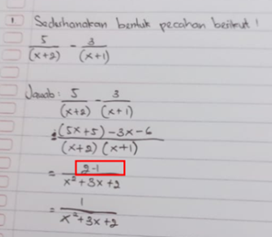 1 Sederhanakan bentuk pecahan berikut !
5/(x+2) - 3/(x+1)
Jawab: 5/(x+2) - 3/(x+1)
= (5x+5)-3x-6/(x+2)(x+1)
= 2-1/x²+3x+2
= 1/x²+3x+2